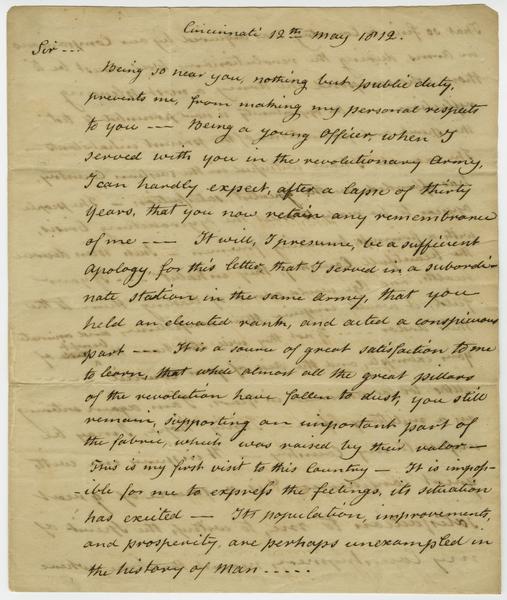 Cincinnati 12th May 1812.
Sir ---
Being so near you, nothing but public duty,
prevents me, from making my personal respects
to you --- Being a young Officer, when I
served with you in the revolutionary Army,
I can hardly expect, after a lapse of thirty
years, that you now retain any remembrance
of me --- It will, I presume, be a sufficient
Apology, for this letter, that I served in a subordi-
nate station in the same Army, that you
held an elevated rank, and acted a conspicuous
part --- It is a source of great satisfaction to me
to learn, that while almost all the great pillars
of the revolution have fallen to dust, you still
remain, supporting an important part of
the fabric, which was raised by their valor —
This is my first visit to this Country — It is impos-
-ible for me to express the feelings, its situation
has excited — Its population, improvements,
and prosperity, are perhaps unexampled in
the history of Man -----